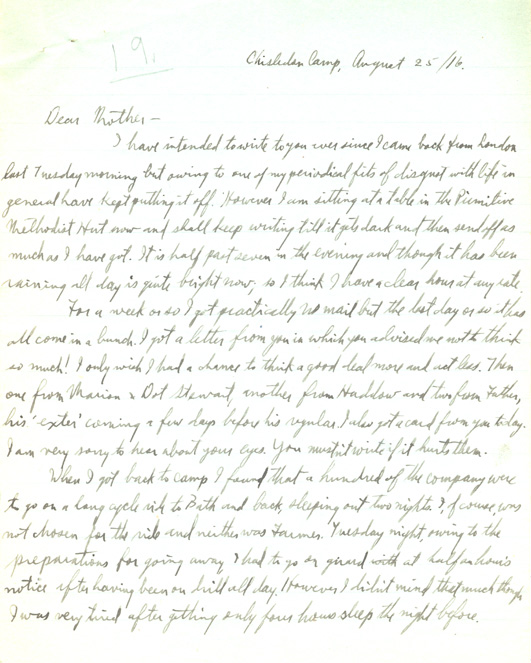 19.
Chisledon Camp, August 25/16.
Dear Mother —
I have intended to write to you ever since I came back from London
last Tuesday morning but owing to one of my periodical fits of disgust with life in
general have kept putting it off. However I am sitting at a table in the Primitive
Methodist Hut now and shall keep writing till it gets dark and then send off as
much as I have got. It is half past seven in the evening and though it has been
raining all day is quite bright now, so I think I have a clear hour at any rate.
For a week or so I got practically no mail but the last day or so it has
all come in a bunch. I got a letter from you in which you advised me not to think
so much! I only wish I had a chance to think a good deal more and act less. Then
one from Marion & Dot Stewart, another from Haddow and two from Father,
his 'extra' coming a few days before his regular. I also got a card from you today.
I am very sorry to hear about your eyes. You mustn't write if it hurts them.
When I got back to camp I found that a hundred of the company were
to go on a long cycle ride to Bath and back sleeping out two nights. I, of course was
not chosen for the ride and neither was Farmer. Tuesday night, owing to the
preparations for going away I had to go on guard with at half an hour's
notice after having been on drill all day. However I didn't mind that much though
I was very tired after getting only four hours sleep the night before.